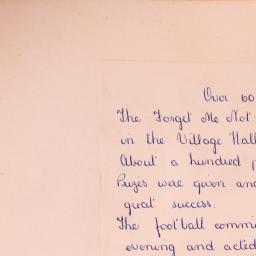 Over 60
The Forget Me Not
in the Village Hall
About a hundred p
Prizes were given and
great success.
The football commi
evening and acted